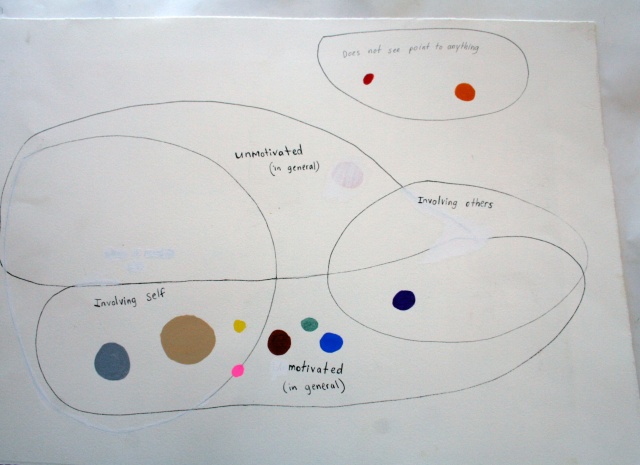 Does not see point to anything
unmotivated
(in general)
Involving others
Involving self
motivated
(in general)